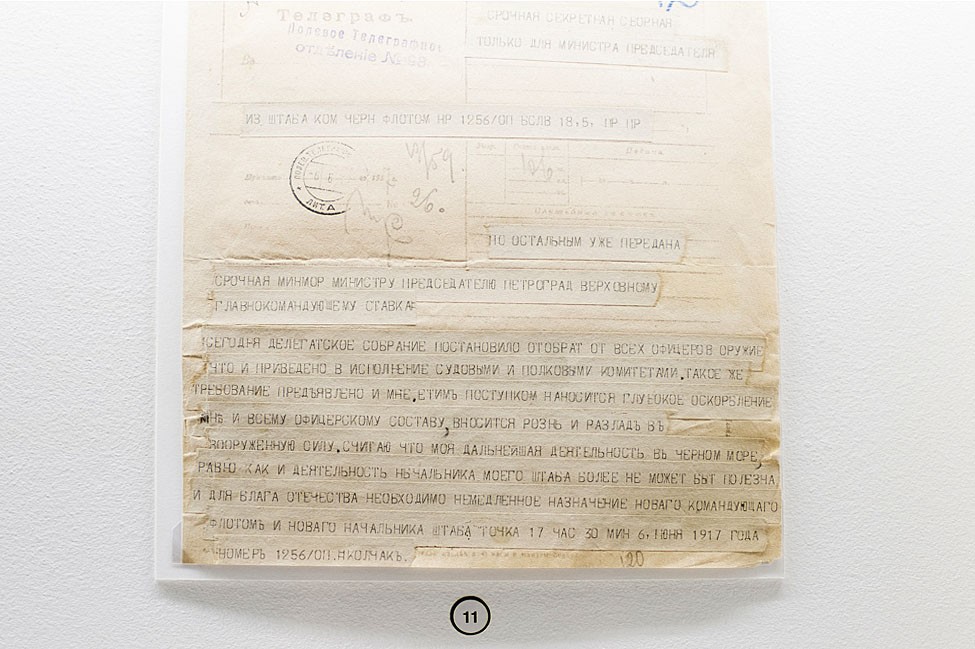 Телеграфъ
Полевое Телеграфное
отдѣленіе № 68
СРОЧНАЯ СЕКРЕТНАЯ СБОРНАЯ
ТОЛЬКО ДЛЯ МИНИСТРА ПРЕДСЕДАТЕЛЯ
ИЗ ШТАБА КОМ ЧЕРН ФЛОТОМ НР 1256/ОП ВСЛВ 18,5, ПР ПР
ПО ОСТАЛЬНЫМ УЖЕ ПЕРЕДАНА
СРОЧНАЯ МИНМОР МИНИСТРУ ПРЕДСЕДАТЕЛЮ ПЕТРОГРАД ВЕРХОВНОМУ
ГЛАВНОКОМАНДУЮЩЕМУ СТАВКА=
СЕГОДНЯ ДЕЛЕГАТСКОЕ СОБРАНИЕ ПОСТАНОВИЛО ОТОБРАТ ОТ ВСЕХ ОФИЦЕРОВ ОРУЖИЕ
ЧТО И ПРИВЕДЕНО В ИСПОЛНЕНИЕ СУДОВЫМИ И ПОЛКОВЫМИ КОМИТЕТАМИ.ТАКОЕ ЖЕ
ТРЕБОВАНИЕ ПРЕДЪЯВЛЕНО И МНЕ.ЕТИМЪ ПОСТУПКОМ НАНОСИТСЯ ГЛУБОКОЕ ОСКОРБЛЕНИЕ
МНЕ И ВСЕМУ ОФИЦЕРСКОМУ СОСТАВУ,ВНОСИТСЯ РОЗНЬ И РАЗЛАДЪ ВЪ
ВООРУЖЕННУЮ СИЛУ.СЧИТАЮ ЧТО МОЯ ДАЛЬНЕЙШАЯ ДЕЯТЕЛЬНОСТЬ ВЪ ЧЕРНОМ МОРЕ,
РАВНО КАК И ДЕЯТЕЛЬНОСТЬ НАЧАЛЬНИКА МОЕГО ШТАБА БОЛЕЕ НЕ МОЖЕТ БЫТ ПОЛЕЗНА
И ДЛЯ БЛАГА ОТЕЧЕСТВА НЕОБХОДИМО НЕМЕДЛЕННОЕ НАЗНАЧЕНИЕ НОВАГО КОМАНДУЮЩАГО
ФЛОТОМЪ И НОВАГО НАЧАЛЬНИКА ШТАБА ТОЧКА 17 ЧАС 30 МИН 6, ІЮНЯ 1917 ГОДА
НОМЕРЪ 1256/ОП.НКОЛЧАК.
120
11